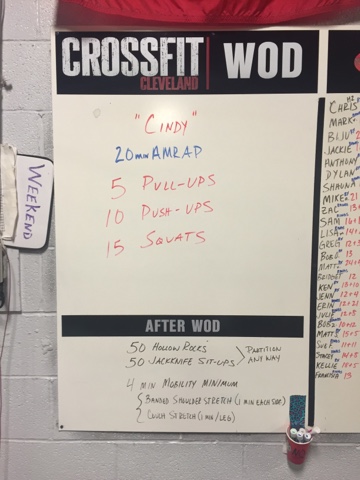 CROSSFIT WOD
CLEVELAND
"CINDY"
20 min AMRAP
5 PULL-UPS
10 PUSH-UPS
15 SQUATS
AFTER WOD
50 HOLLOW ROCKS
50 JACKKNIFE SIT-UPS
PARTITION ANY WAY
4 MIN MOBILITY MINIMUM
BANDED SHOULDER STRETCH (1 MIN EACH SIDE)
COUCH STRETCH (1 MIN/LEG)
WEEKEND
CHRIS
MARK
BIJU
JACKIE
ANTHONY
DYLAN
SHAUNA
MIKE 21
ZAC 13+
SAM
LISA
GREG
BORU 13
MATT
BRIDGET 12
KEN
JENN
ERIN
JULI
BOBZ
MATT
SUE
STACEY
KELLIE
FRANCISCO 13